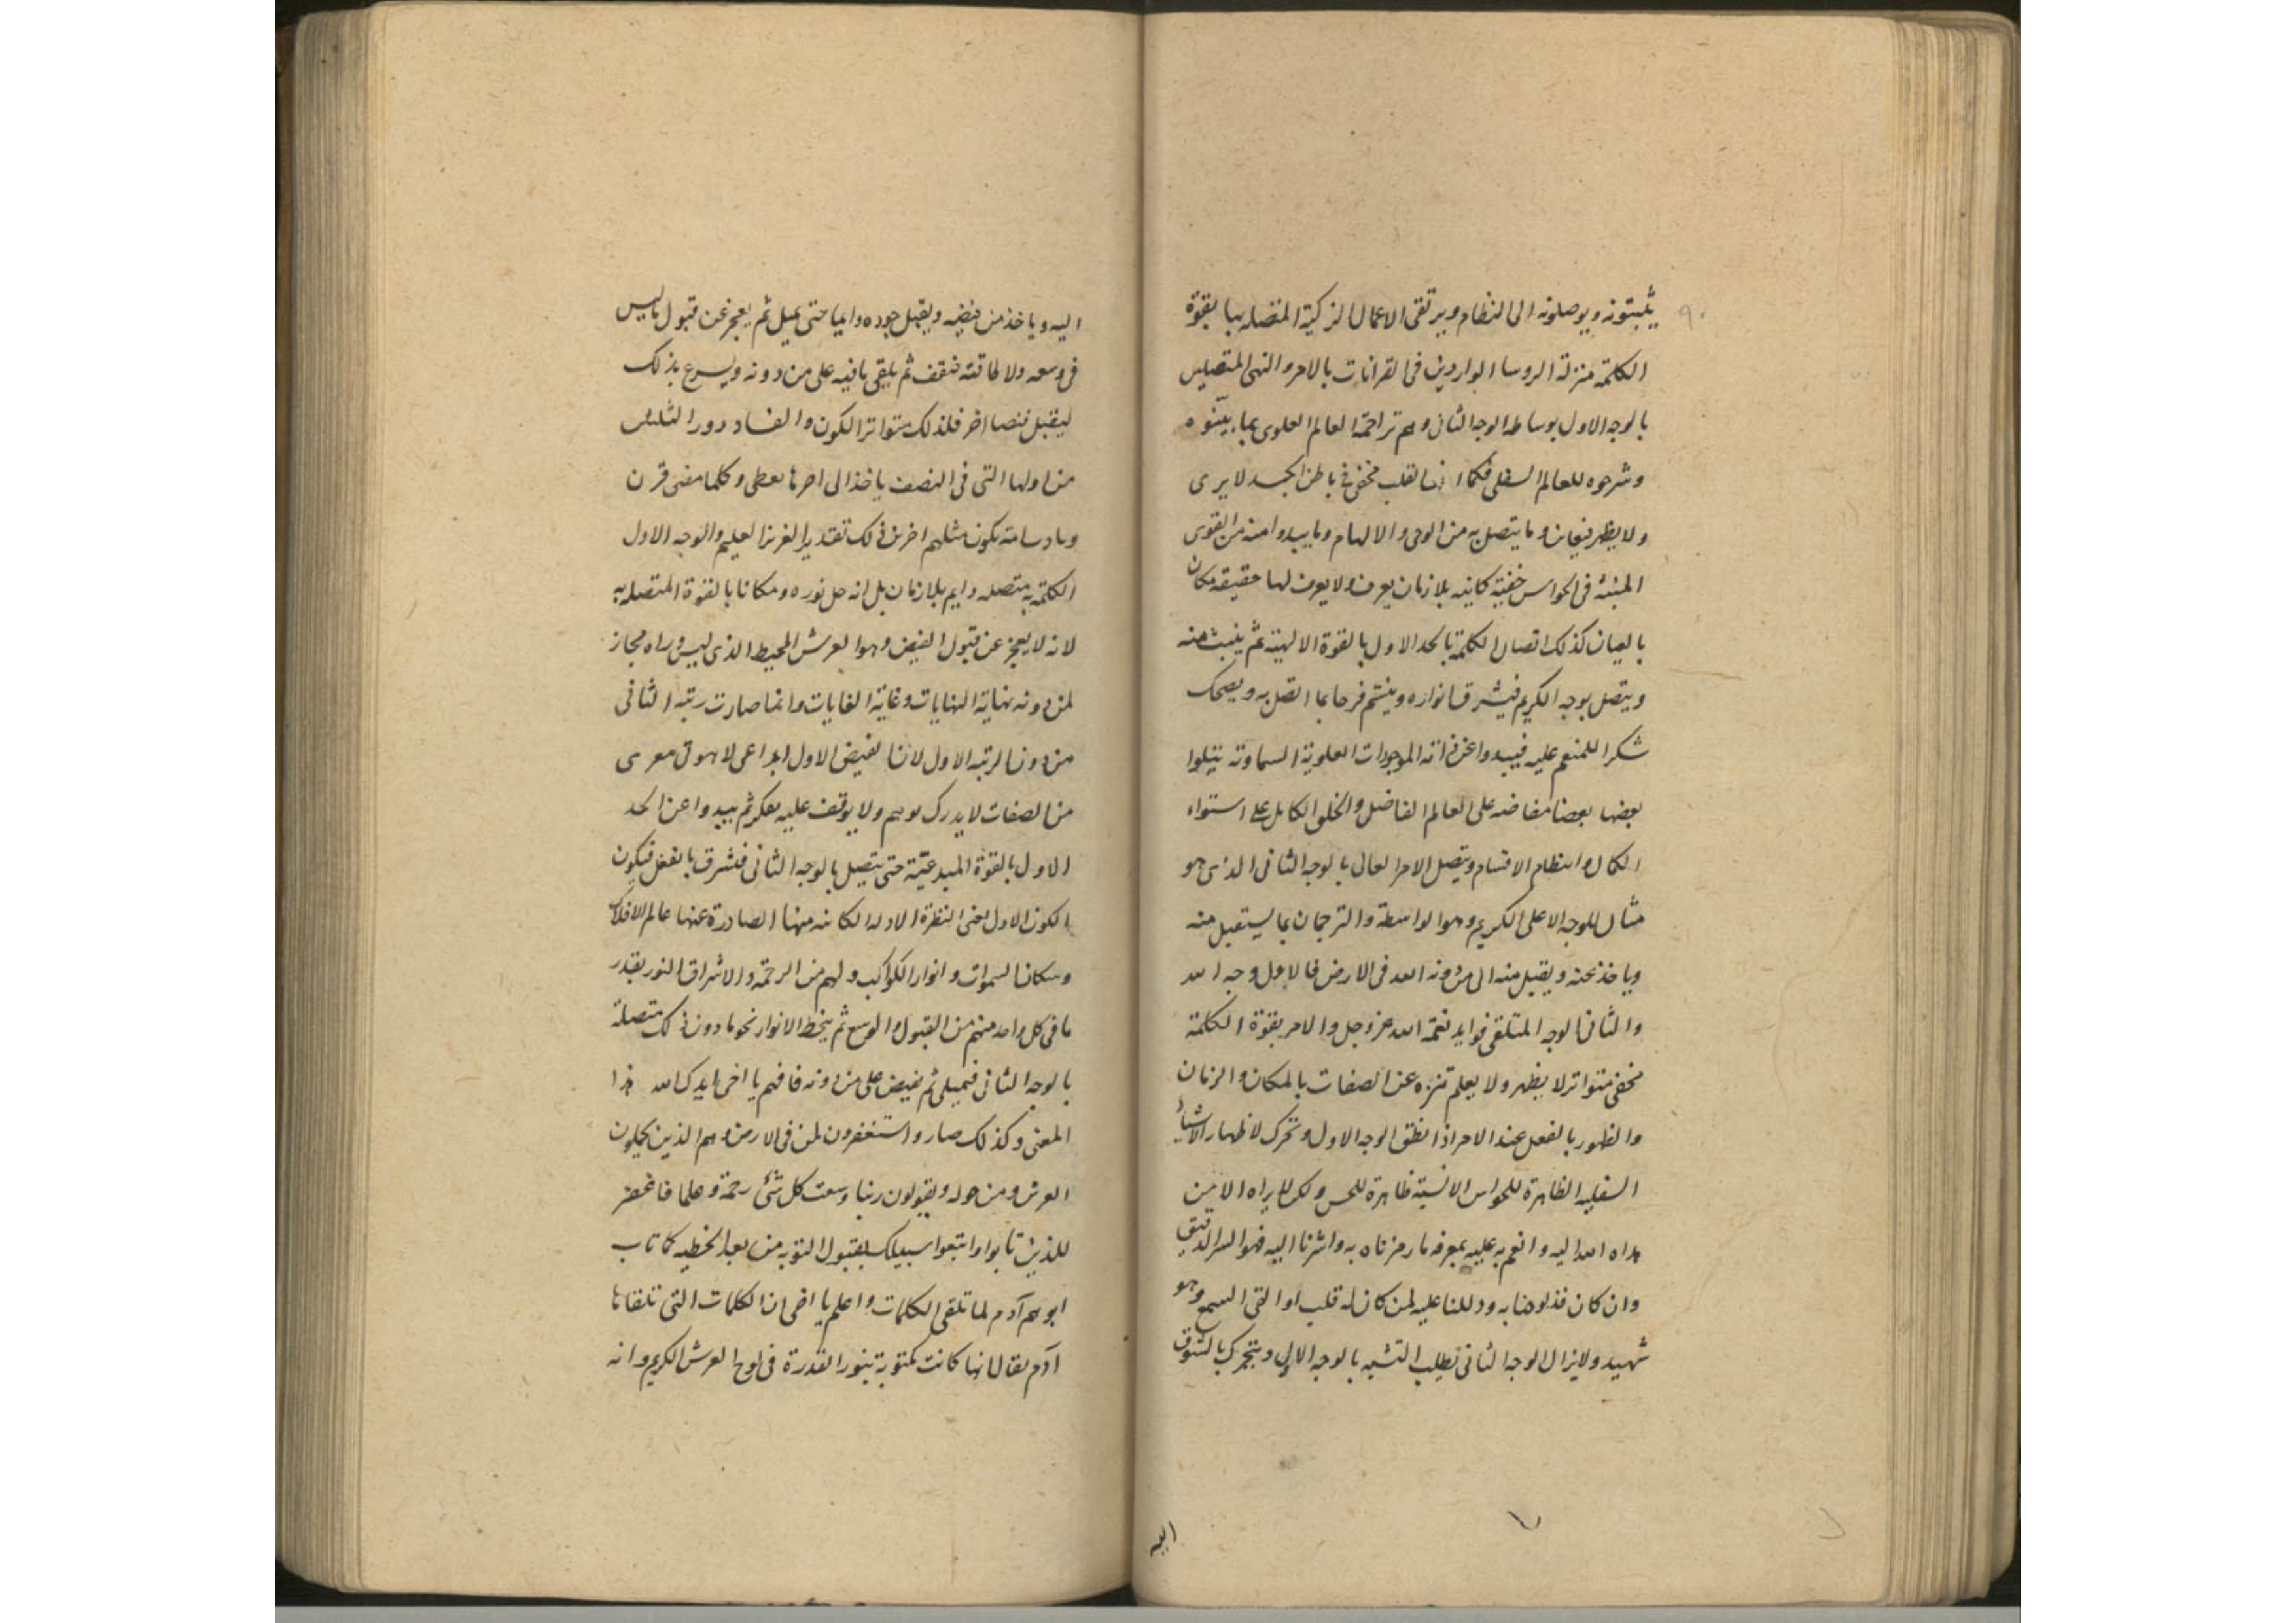 ٩٠
يثبتونه ويوصلونه الى النظام ويرتقى الاعمال الزكية المتصله بها بقوة
الكلمة منزلة الروسا الواردين فى القرانات بالامر والنهى المتصلين
بالوجه الاول بوساطه الوجه الثانى وهم تراجمة العالم العلوى بما بيّنوه
وشرحوه للعالم السفلى فكما ان القلب مخفى فى باطن الجسد لا يرى
ولا يظهر فيعاين وما يتصل به من الوحى والالهام وما يبدوا منه من القوى
المنبثه فى الحواس خفية كاينه بلا زمان يعرف ولا يعرف لها حقيقه مكان
بالعيان كذلك اتصال الكلمة بالحد الاول بالقوة الالهية ثم ينبث منه
ويتصل بوجه الكريم فيشرق انواره ويبتسم فرحا بما اتصل به ويضحك
شكرا للمنعم عليه فيبدوا عن ذاته الموجودات العلوية السماوته يتلوا
بعضها بعضا مفاضه على العالم الفاضل والخلق الكامل على استواء
الكمال وانتظام الاقسام ويتصل الامر العالى بالوجه الثانى الذى هو
مثال للوجه الاعلى الكريم وهو الواسطة والترجمان بما يستقبل منه
وياخذ عنه ويقبل منه الى من دونه الله فى الارض فالاول وجه الله
والثانى الوجه المتلقى فوايد نعمة الله عز وجل والامر بقوة الكلمة
مخفى متواتر لا يظهر ولا يعلم تنزه عن الصفات بالمكان والزمان
والظهور بالفعل عند الامر اذا نطق الوجه الاول وتحرك لاظهار الاشياء
السفليه الظاهرة للحواس الانسية ظاهرة للحس ولكن لا يراه الا من
هداه الله اليه وانعم به عليه بمعرفه ما رمزناه به واشرنا اليه فهو السر الدقيق
وان كان قد لوحنا به ودللنا عليه لمن كان له قلب او القى السمع وهو
شهيد ولا يزال الوجه الثانى يطلب التشبه بالوجه الاول ويتحرك بالشوق
اليه
اليه وياخذ من فيضه ويقبل جوده دايما حتى يميل ثم يعجز عن قبول ما ليس
فى وسعه ولا طاقته فيقف ثم يلقى ما فيه على من دونه ويسرع بذلك
ليقبل فيضا اخر فلذلك متواتر الكون والفساد دور
من اولها التى فى النصف ياخذ الى اخرها يعطى وكلما مضى قرن
وباد سامته يكون مثلهم اخرين ذلك تقدير العزيز العليم والوجه الاول
الكلمة به متصله دايم بلا زمان بل انه حل نوره ومكانا بالقوة المتصله به
لانه لا يعجز عن قبول الفيض وهو العرش المحيط الذى ليس وراه مجاز
لمن دونه نهاية النهايات وغاية الغايات وانما صارت رتبه الثانى
من دون الرتبه الاول لان الفيض الاول ابداعى لاهوتى معرى
من الصفات لا يدرك بوهم ولا يوقف عليه بفكر ثم يبدوا عن الحد
الاول بالقوة المبدعيّة حتى يتصل بالوجه الثانى فتشرق بالفعل فيكون
الكون الاول اعنى النظرة الاوله الكاينه منها الصادرة عنها عالم الافلاك
وسكان السموات وانوار الكواكب ولهم من الرحمة والاشراق النور بقدر
ما فى كل واحد منهم من القبول والوسع ثم ينحط الانوار نحو ما دون ذلك متصلة
بالوجه الثانى فيميلى ثم يفيض على من دونه فافهم يا اخى ايدك الله هذا
المعنى وكذلك صار واستغفرون لمن فى الارض وهم الذين يحملون
العرش ومن حوله ويقولون ربنا وسعت كل شئ رحمة وعلما فاغفر
للذين تابوا واتبعوا سبيلك بقبول التوبه من بعد الخطيه كما تاب
ابوهم آدم لما تلقى الكلمات واعلم يا اخى ان الكلمات التى تلقاها
آدم يقال انها كانت مكتوبة بنور القدرة فى لوح العرش الكريم وانه